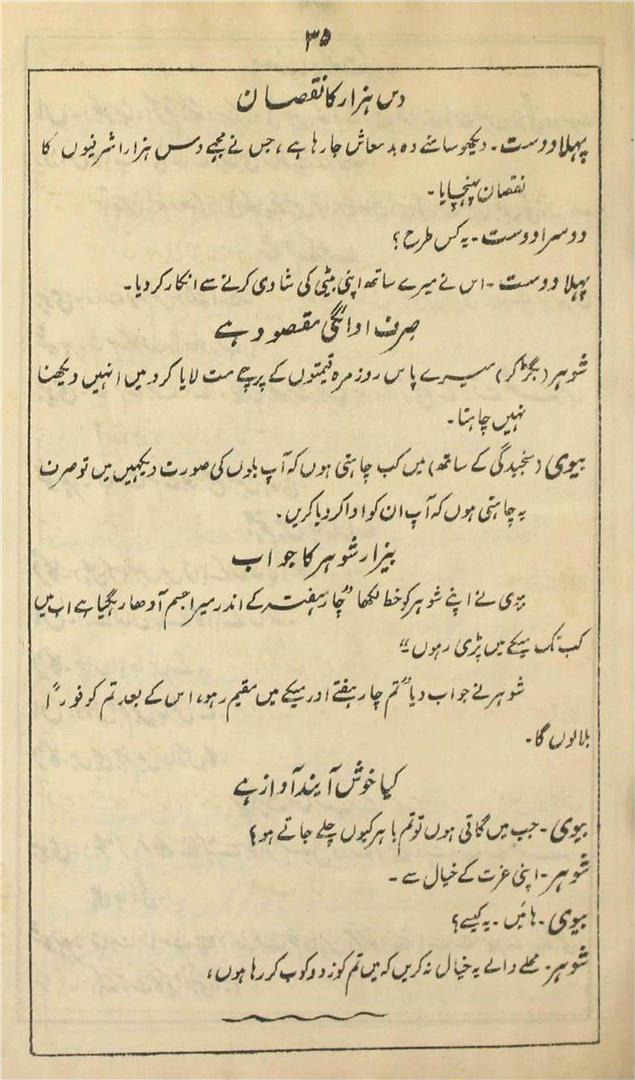 ۳۵
دس ہزار کا نقصان
پہلا دوست۔ دیکھو سامنے وہ بدمعاش جارہا ہے، جس نے مجھے دس ہزار اشرفیوں کا
نقصان پہنچایا۔
دوسرا دوست۔ یہ کس طرح؟
پہلا دوست۔ اس نے میرے ساتھ اپنی بیٹی کی شادی کرنے سے انکار کردیا۔
صرف ادائگی مقصود ہے
شوہر (بگڑ کر) میرے پاس روز مرہ قیمتوں کے پرچے مت لایا کرو میں انہیں دیکھنا
نہیں چاہتا۔
بیوی (سنجیدگی کے ساتھ) میں کب چاہتی ہوں کہ آپ بلوں کی صورت دیکھیں میں تو صرف
یہ چاہتی ہوں کہ آپ ان کو ادا کر دیا کریں۔
بیزار شوہر کا جواب
بیوی نے اپنے شوہر کو خط لکھا "چار ہفتہ کے اندر میرا جسم آدھا رہگیا ہے اب میں
کب تک میکے میں پڑی رہوں"
شوہر نے جواب دیا "تم چار ہفتے اور میکے میں مقیم رہو، اس کے بعد تم کو فوراً
بلالوں گا۔
کیا خوش آیند آواز ہے
بیوی۔ جب میں گاتی ہوں تو تم باہر کیوں چلے جاتے ہو؟
شوہر۔ اپنی عزت کے خیال سے۔
بیوی۔ ہائیں۔ یہ کیسے؟
شوہر۔ محلے والے یہ خیال نہ کریں کہ میں تم کو زدوکوب کر رہا ہوں،